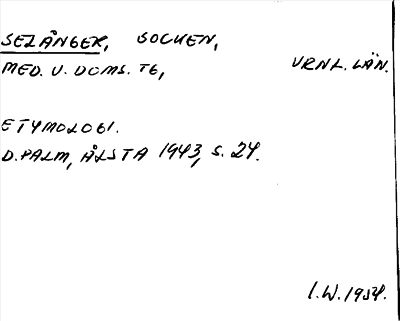 SELÅNGER, SOCKEN,
MED. U. DOMS. TG, VRNL. LÄN.
ETYMOLOGI.
D. PALM, ÅLSTA 1943, S. 24.
I.W. 1954.